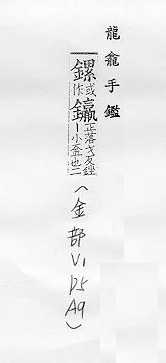 龍龕手鑑
鏍或作正落戈反銼丨小釜也二(金部V1 P25 A9)